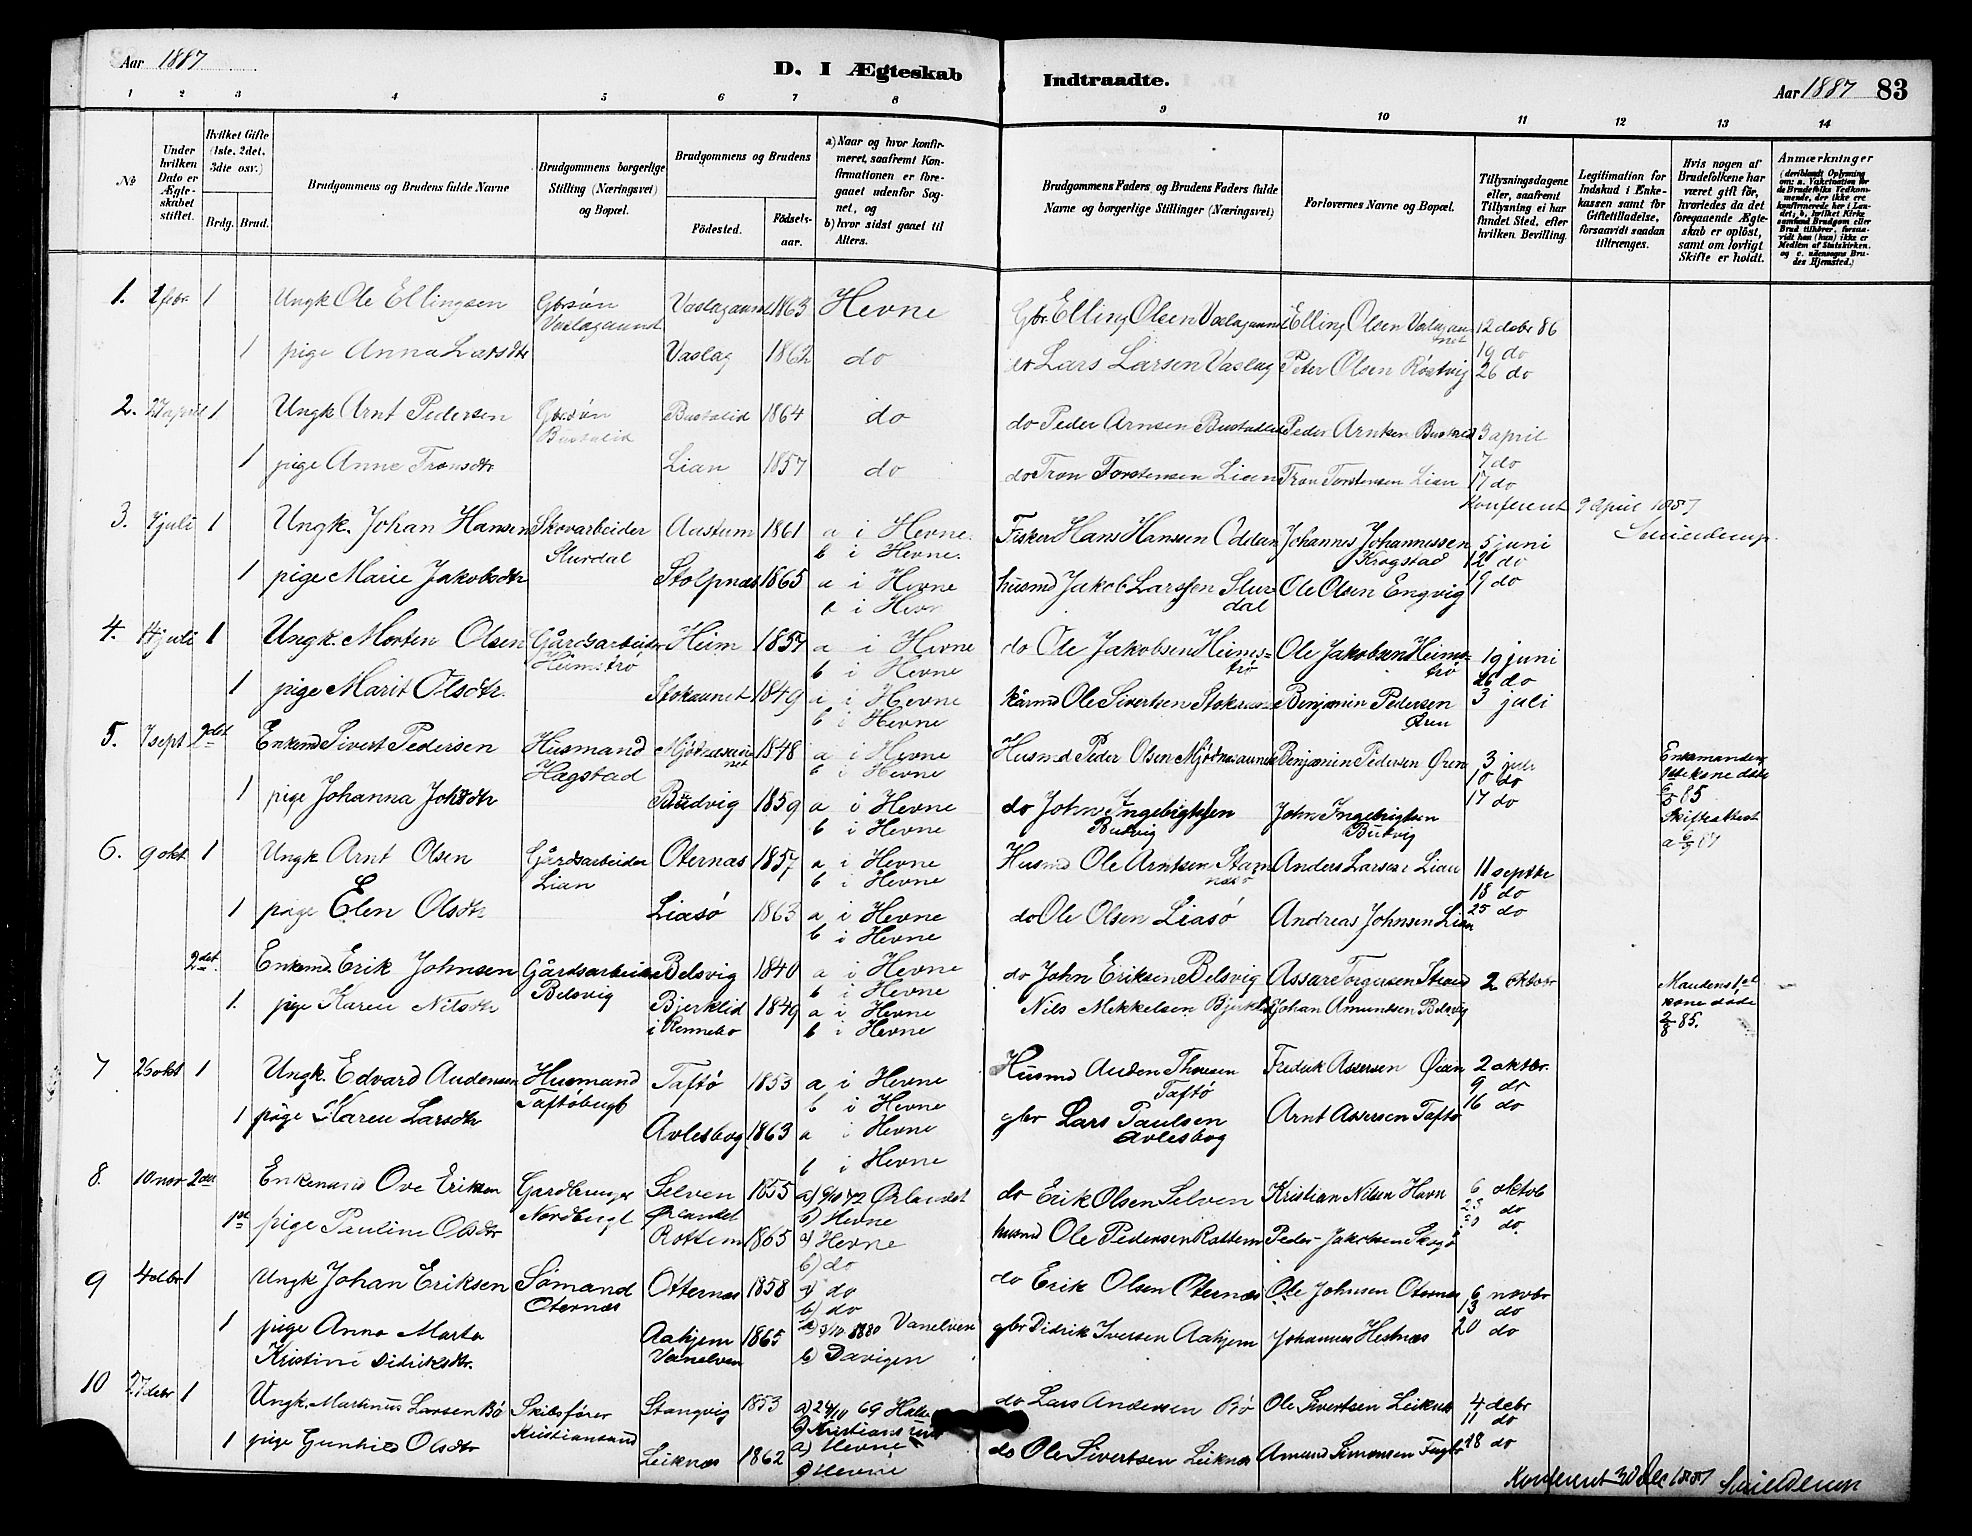 Aar 1887
D. I Ægteskab
Indtraadte.
Aar 1887 83
1 2 3 4 5 6 7 8 9 10 11 12 13 14
No
Under hvilken Dato er Ægteskabet stiftet.
Hvilket Gifte (1ste, 2det, 3die osv.)
Brdg. Brud.
Brudgommens og Brudens fulde Navne
Brudgommens borgerlige Stilling (Næringsvei) og Bopæl.
Brudgommens og Brudens
Fødested.
Fødselsaar.
a) Naar og hvor konfirmeret, saafremt Konfirmationen er foregaaet udenfor Sognet, og
b) hvor sidst gaaet til Alters.
Brudgommens Faders og Brudens Faders fulde Navne og borgerlige Stillinger (Næringsvei)
Forlovernes Navne og Bopæl.
Tillysningsdagene eller, saafremt Tillysning ei har fundet Sted, efter hvilken Bevilling.
Legitimation for Indskud i Enkekassen samt for Giftetilladelse, forsaavidt saadan tiltrænges.
Hvis nogen af Brudefolkene har været gift før, hvorledes da det foregaaende Ægteskab er opløst, samt om lovligt Skifte er holdt.
Anmærkninger
1. 2 febr. 1 Ungk Ole Ellingsen Gbrsøn Vaslagaunet Vaslagaunet 1863 Hevne Gbr Elling Olsen Vaslagaunet Elling Olsen Vaslagaunet 12 debr 86
1 pige Anna Larsdtr Vaslag 1862 do Lars Larsen Vaslag Peter Olsen Røstvig 19 do
26 do
2. 27 april 1 Ungk Arnt Pedersen Gbrsøn Bustalid Bustalid 1864 do do Peder Arnsen Bustalid Peder Arntsen Bustalid 3 april
1 pige Anne Tronsdtr Lian 1857 do do Tron Torstensen Lian Tron Torstensen Lian 7 do
17 do
Konfereret 9 April 1887
3. 4 juli 1 Ungk. Johan Hansen Skovarbeider Slurdal Aastum 1861 a i Hevne. Fisker Hans Hansen Oddan Johannes Johannessen Krogstad 5 juni
b i Hevne. 12 do
1 pige Marie Jakobsdtr Stolpnæs 1865 a i Hevne husmd Jakob Larssen Slurdal Ole Olsen Engvig 19 do
b i Hevn
4. 4 juli 1 Ungk. Morten Olsen Gårdsarbeider Heimstrø Heim 1857 a i Hevne do Ole Jakobsen Heimstrø Ole Jakobsen Heimstrø 19 juni
b i Hevne 26 do
1 pige Marit Olsdtr. Stokaunet 1849 a i Hevne kårmd Ole Sivertsen Stokaunet Benjamin Pedersen Øren 3 juli
b i Hevne
5. 7 sept 2det Enkemd Sivert Pedersen Husmand Hagstad Mjødnasaunet 1848 a i Hevne Husmd Peder Olsen Mjødnasaunet Benjamin Pedersen Øren 3 juli Enkemandens
b i Hevne 10 do 1ste kone døde
1 pige Johanna Johsdtr Budvig 1859 a i Hevne do John Ingebrigtsen Budvig John Ingebrigtsen Budvig 17 do 6/5 85
b i Hevne Skifteattest
6. 9 okt 1 Ungk Arnt Olsen Gårdsarbeider Lian Oternæs 1857 a i Hevne Husmd Ole Arntsen Anders Larsen Lian 11 septbr
b i Hevne 18 do
1 pige Elen Olsdtr Liasø 1863 a i Hevne do Ole Olsen Liasø Andreas Johnsen Lian 25 do
b i Hevne
2det. Enkemd. Erik Johnsen Gårdsarbeider Belsvig Belsvig 1840 a i Hevne do John Eriksen Belsvig Assar Torgersen Strand 2 oktobr Mandens 1st
b i Hevne kone døde
1. pige Karen Nilsdtr Bjerklid i Rennebo 1849 a i Hevne Nils Mikkelsen Bjerklid Johan Amundsen Belsvig 2/8 85.
b i Hevne
7 26 okt 1 Ungk. Edvard Audensen Husmand Taftøbugt Taftø 1853 a i Hevne Husmd Auden Thoresen Taftø Fredrik Assersen Øian 2 oktbr.
b i Hevne 9 do
1 pige Karen Larsdtr Avlesbog 1863 a i Hevne gbr Lars Paulsen Avlesbog Arnt Assersen Taftø 16 do
b i Hevne
8. 10 nov 2det Enkemand Ove Eriksen Gardbruger Nordbugt Selven Ørlandet 1855 a) 9/10 72 Ørlandet do Erik Olsen Selven Kristian Nilsen Havn 6 oktob
b) Hevne 23 do
1st pige Pauline Olsdtr Rottem 1865 a) Hevne husmd Ole Pedersen Rottem Peder Jakobsen Skogø 30 do.
b) do
9 4 debr 1 Ungk Johan Eriksen Sømand Oternæs Otternæs 1858 a) do do Erik Olsen Oternæs Ole Johnsen Oternæs 6 novbr
b) do 13 do
1 pige Anna Marta Kristine Didriksdtr. Aahjem Vanelven 1865 a) 3/10 1880 Vanelven gbr Didrik Iversen Aahjem Johannes Hestnæs 20 do
b) Davigen
10 27 debr 1 Ungk. Martinus Larsen Bø Skibsfører Kristiansund Stangvig 1853 a) 24/10 69 do Lars Andersen Bø Ole Sivertsen Leiknes 4 debr
b) Kristiansund 11 do
1 pige Gunhild Olsdtr Leiknæs 1862 a) Hevne do Ole Sivertsen Leiknæs Amund Simonsen Fuglø 18 do
b) Hevne
Konfereret 30 Dec 1887